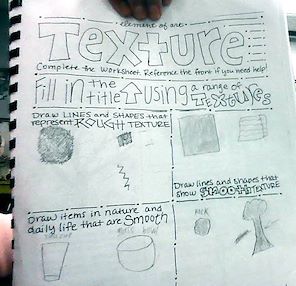 element of art
Texture
Complete the worksheet. Reference the front if you need help!
Fill in the title ↑ using a range of Textures
Draw LINES and SHAPES that
represent ROUGH TEXTURE
Draw lines and shapes that
show SMOOTH TEXTURE
Draw items in nature and
daily life that are Smooth
bowl
rock